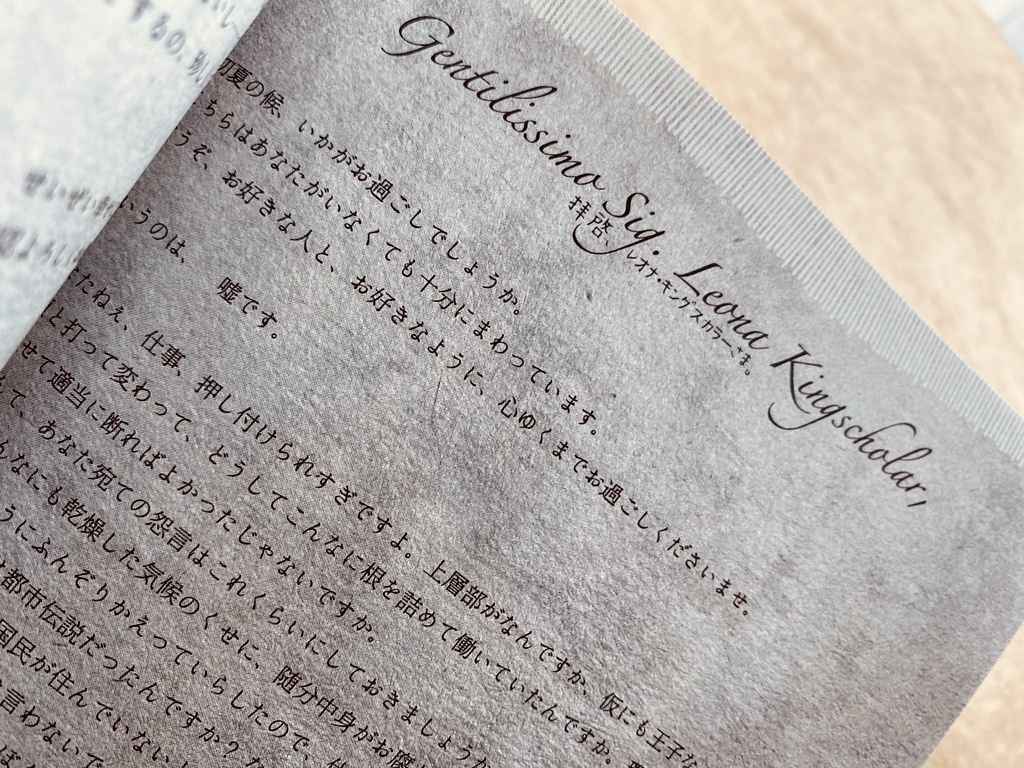 するの。
せいぜい
Gentilissimo Sig. Leona Kingscholar,
拝啓、レオナ・キングスカラーさま。
初夏の候、いかがお過ごしでしょうか。
ちらはあなたがいなくても十分にまわっています。
うぞ、お好きな人と、お好きなように、心ゆくまでお過ごしくださいませ。
いうのは、嘘です。
たねえ、仕事、押し付けられすぎですよ。上層部がなんですか、仮にも王子な
と打って変わって、どうしてこんなに根を詰めて働いていたんですか。
せて適当に断ればよかったじゃないですか。
て、あなた宛ての怨言はこれくらいにしておきましょうか
んなにも乾燥した気候のくせに、随分中身がお腐
うにふんぞりかえっていらしたので、
都市伝説だったんですか？
国民が住んでいない
言わないで